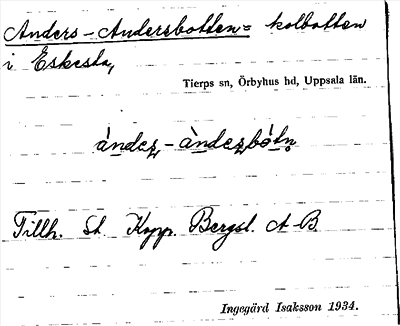 Anders-Andersbotten = kolbotten
i Eskesta,
Tierps sn, Örbyhus hd, Uppsala län.
àndeʂ-àndeʂbótn̥
Tillh. St. Kopp. Bergsl. A-B
Ingegärd Isaksson 1934.